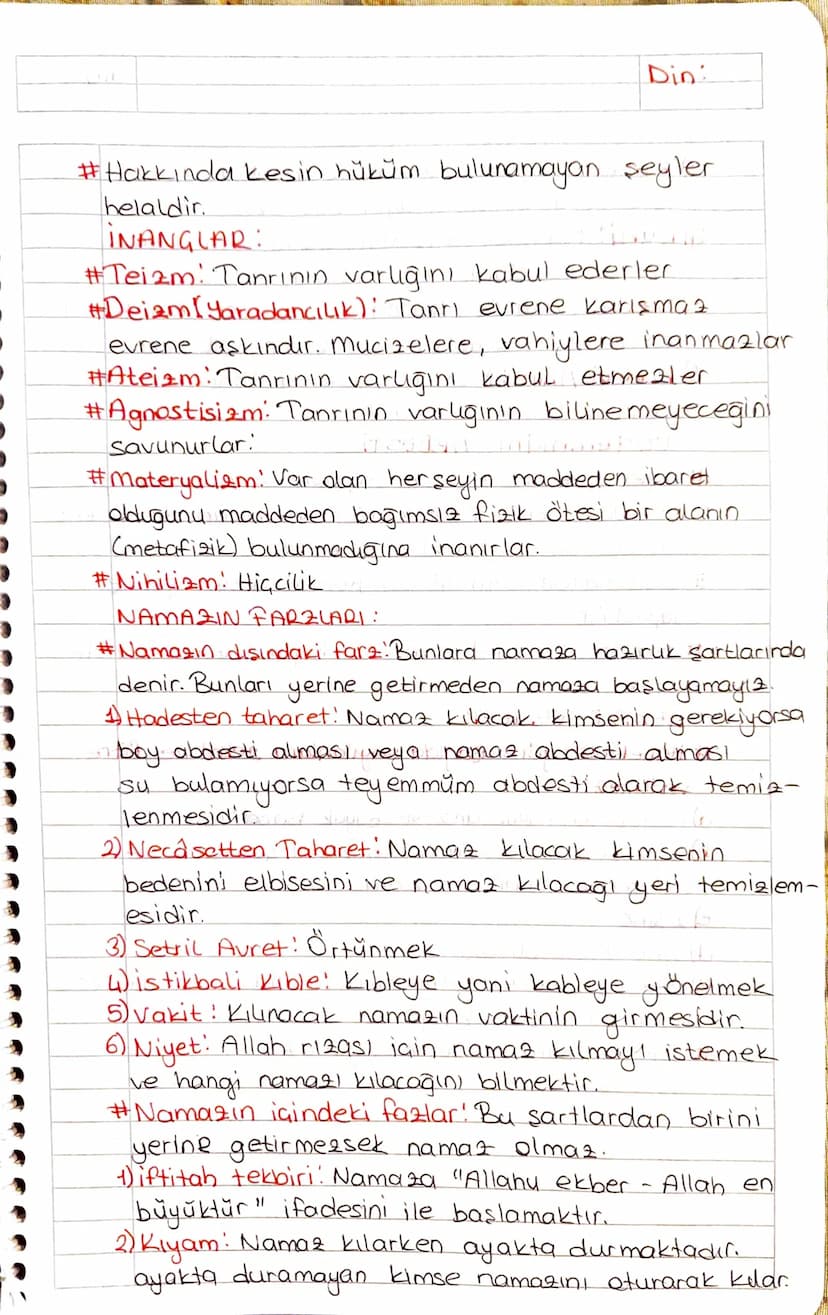 Din:
# Hakkında kesin hüküm bulunamayan şeyler
helaldir.
İNANÇLAR:
#Teizm: Tanrının varlığını kabul ederler
#Deizm(Yaradancılık): Tanrı evrene karışmaz
evrene aşkındır. Mucizelere, vahiylere inanmazlar
#Ateizm: Tanrının varlığını kabul etmezler
#Agnostisizm: Tanrının varlığının bilinemeyeceğini
savunurlar.
#Materyalizm: Var olan herşeyin maddeden ibaret
olduğunu maddeden bağımsız fizik ötesi bir alanın
(metafizik) bulunmadığına inanırlar.
# Nihilizm: Hiçcilik
NAMAZIN FARZLARI:
#Namazın dışındaki farz: Bunlara namaza hazırlık şartlarında
denir. Bunları yerine getirmeden namaza başlayamayız.
1) Hadesten taharet: Namaz kılacak kimsenin gerekiyorsa
boy abdesti alması veya namaz abdesti alması
su bulamıyorsa teyemmüm abdesti alarak temiz-
lenmesidir.
2) Necâsetten Taharet: Namaz kılacak kimsenin
bedenini elbisesini ve namaz kılacağı yeri temizlem-
esidir.
3) Setril Avret: Örtünmek
4) istikbali kıble: Kıbleye yani kableye yönelmek
5) Vakit: Kılınacak namazın vaktinin girmesidir.
6) Niyet: Allah rızası için namaz kılmayı istemek
ve hangi namazı kılacağını bilmektir.
#Namazın içindeki fazlar: Bu şartlardan birini
yerine getirmezsek namaz olmaz.
1) iftitah tekbiri: Namaza "Allahu ekber - Allah en
büyüktür" ifadesini ile başlamaktır.
2) Kıyam: Namaz kılarken ayakta durmaktadır.
ayakta duramayan kimse namazını oturarak kılar.